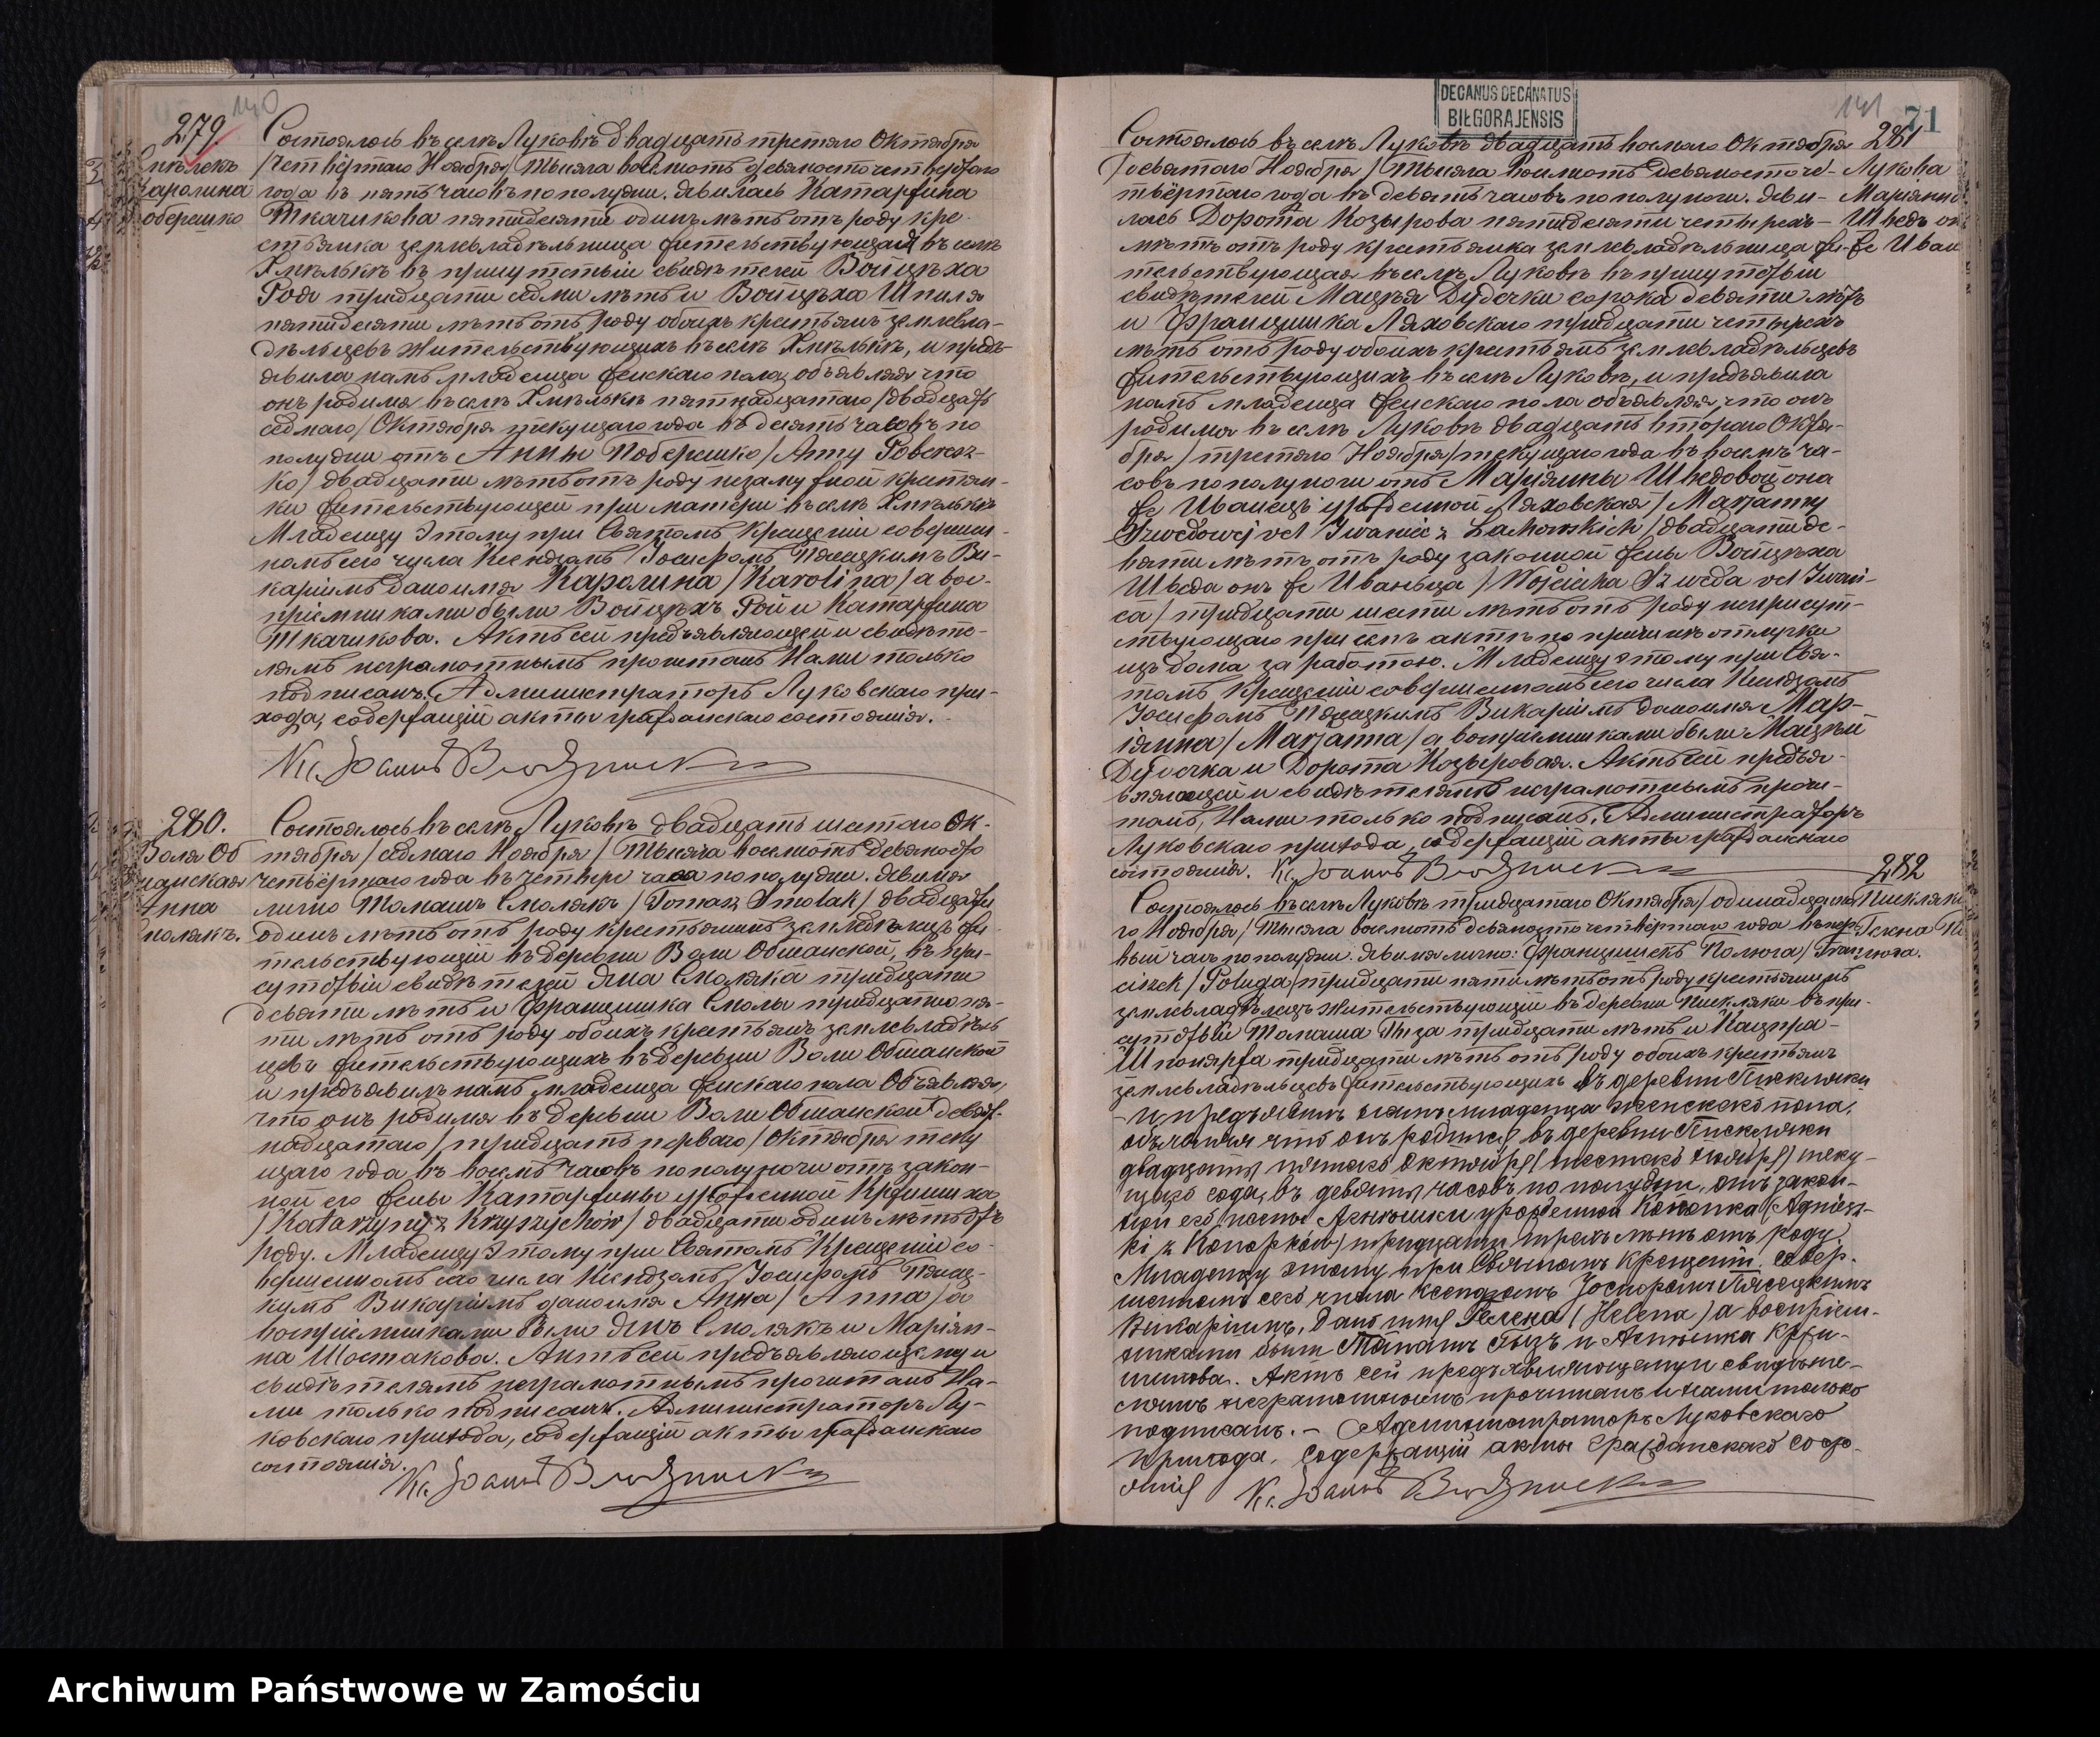 140
279
Хмѣлекъ
Каролина
Поберешко
Состоялось въ селѣ Луковѣ двадцать третяго Октября
/четвёртаго Ноября/ Тысяча восемсотъ девяносто четвертого
года въ пять часовъ по полудни. Явилась Катаржина
Ткачикова пятидесяти одинъ лѣтъ отъ роду кре-
стьянка землевладѣльница жительствующая въ селѣ
Хмѣлькѣ въ присутствіи свидѣтелей Войцѣха
Роя тридцати седми лѣтъ и Войцѣха Шпиля
пятидесяти лѣтъ отъ роду обоихъ крестьянъ землевла-
дѣльцевъ жительствующихъ въ селѣ Хмѣлькѣ, и предъ-
явила намъ младенца женскаго пола, объявляя что
онъ родился въ селѣ Хмѣлькѣ пятнадцатаго /двадцать
седмаго/ Октября текущаго года въ десять часовъ по
полудни отъ Анны Поберешко /Anny Poberesz-
ko/ двадцати лѣтъ отъ роду незамужной крестьян-
ки жительствующей при матери въ селѣ Хмѣлькѣ
Младенцу этому при Святомъ Крещеніи совершон-
номъ сего числа Ксендзомъ Іосифомъ Пясецкимъ Ви-
каріемъ дано имя Каролина /Karolina/ а вос-
пріемниками были Войцѣхъ Рой и Катаржина
Ткачикова. Актъ сей предъявляющей и свидѣте-
лямъ неграмотнымъ прочитанъ Нами только
подписанъ. Администраторъ Луковскаго при-
хода, содержащій акты гражданскаго состоянія.
280.
Воля Об
шанская
Анна
Смолякъ.
Состоялось въ селѣ Луковѣ двадцать шестаго Ок-
тября /седмаго Ноября/ Тысяча восемсотъ девяносто
четвёртаго года въ четыре часа по полудни. Явился
лично Томашъ Смолякъ /Tomasz Smolak/ двадцати
одинъ лѣтъ отъ роду крестьянинъ землевладѣлецъ жи-
тельствующій въ деревни Воли Обшанской, въ при-
сутствіи свидѣтелей Яна Смоляка тридцати
девяти лѣтъ и Францишка Смолы тридцати пя-
ти лѣтъ отъ роду обоихъ крестьянъ землевладѣль
цевъ жительствующихъ въ деревни Воли Обшанской
и предъявилъ намъ младенца женскаго пола Объявляя,
что онъ родился въ деревни Воли Обшанской девят-
надцатаго /тридцать перваго/ Октября теку
щаго года въ восемь часовъ по полуночи отъ закон-
ной его жены Катаржины урожденной Кржишихо
/Katarzyny z Krzyszychów/ двадцати одинъ лѣтъ отъ
роду. Младенцу этому при Святомъ Крещеніи со-
вершенномъ сего числа Ксендзомъ Іосифомъ Пясец-
кимъ Викаріемъ дано имя Анна /Anna/ а
воспріемниками были Янъ Смолякъ и Маріян-
на Шостакова. Актъ сей предъявляющему и
свидѣтелямъ неграмотнымъ прочитанъ На-
ми только подписанъ. Администраторъ Лу-
ковскаго прихода, содержащій акты гражданскаго
состоянія.
DECANUS DECANATUS
BIŁGORAJENSIS
141
71
281
Лукова
Маріянна
Шведъ он
же Иван
Состоялось въ селѣ Луковѣ двадцать восмаго Октября
/девятаго Ноября/ Тысяча восемсотъ девяносто че-
твёртаго года въ девять часовъ по полуночи. Яви-
лась Дорота Козырова пятидесяти четырехъ
лѣтъ отъ роду крестьянка землевладѣльница жи-
тельствующая въ селѣ Луковѣ въ присутствіи
свидѣтелей Мацѣя Дудечки сорока девяти лѣтъ
и Францишка Ляховскаго тридцати четырехъ
лѣтъ отъ роду обоихъ крестьянъ землевладѣльцевъ
жительствующихъ въ селѣ Луковѣ, и предъявила
намъ младенца женскаго пола объявляя, что онъ
родился въ селѣ Луковѣ двадцать втораго Октя-
бря /третяго Ноября/ текущаго года въ восемъ ча-
совъ по полуночи отъ Маріянны Шведовой она
же Иванецъ урожденной Ляховская /Marjanny
Szwedowej vel Iwaniec z Lachowskich/ двадцати де-
вяти лѣтъ отъ роду законной жены Войцѣха
Шведа онъ же Иваньца /Wojciecha Szweda vel Iwań-
ca/ тридцати шести лѣтъ отъ роду неприсут-
ствующаго при семъ актѣ по причинѣ отлучки
изъ дома за работою. Младенцу этому при Свя-
томъ Крещеніи совершенномъ сего числа Ксендзомъ
Іосифомъ Пясецкимъ Викаріемъ дано имя Мар-
іянна /Marjanna/ а воспріемниками были Мацѣй
Дудечка и Дорота Козыровая. Актъ сей предъя-
вляющей и свидѣтелямъ неграмотнымъ прочи-
танъ, Нами только подписанъ. Администраторъ
Луковскаго прихода, содержащій акты гражданскаго
состоянія.
282
Пискляки
Гелена По
люга.
Состоялось въ селѣ Луковѣ тридцатаго Октября /одинадцата
го Ноября/ Тысяча восемсотъ девяносто четвёртаго года въ пер-
вый часъ по полудни. Явился лично: Францишекъ Полюга /Fran-
ciszek Poluga/ тридцати пяти лѣтъ отъ роду крестьянинъ
землевладѣлецъ жительствующій въ деревни Пискляки въ при-
сутствіи Томаша Гыза тридцати лѣтъ и Кацпра
Шпоняржа тридцати лѣтъ отъ роду обоихъ крестьянъ
землевладѣльцевъ жительствующихъ въ деревни Пискляки
и предъявилъ намъ младенца женскаго пола,
объявляя что онъ родился въ деревни Пискляки
двадцать пятаго Октября /шестаго Ноября/ теку-
щаго года, въ девять часовъ по полудни, отъ закон-
ной его жены Агнешки урожденной Конопка (Agniesz-
ki z Konopków) тридцати трехъ лѣтъ отъ роду.
Младенцу этому при Святомъ Крещеніи, совер-
шенномъ сего числа Ксендзомъ Іосифомъ Пясецкимъ
Викаріемъ, дано имя Гелена (Helena) а воспріем-
никами были Томашъ Гызъ и Агнешка Кржи-
шихова. Актъ сей предъявляющему и свидѣте-
лямъ неграмотнымъ прочитанъ и нами только
подписанъ. – Администраторъ Луковскаго
прихода, содержащій акты гражданскаго состо-
янія
Archiwum Państwowe w Zamościu